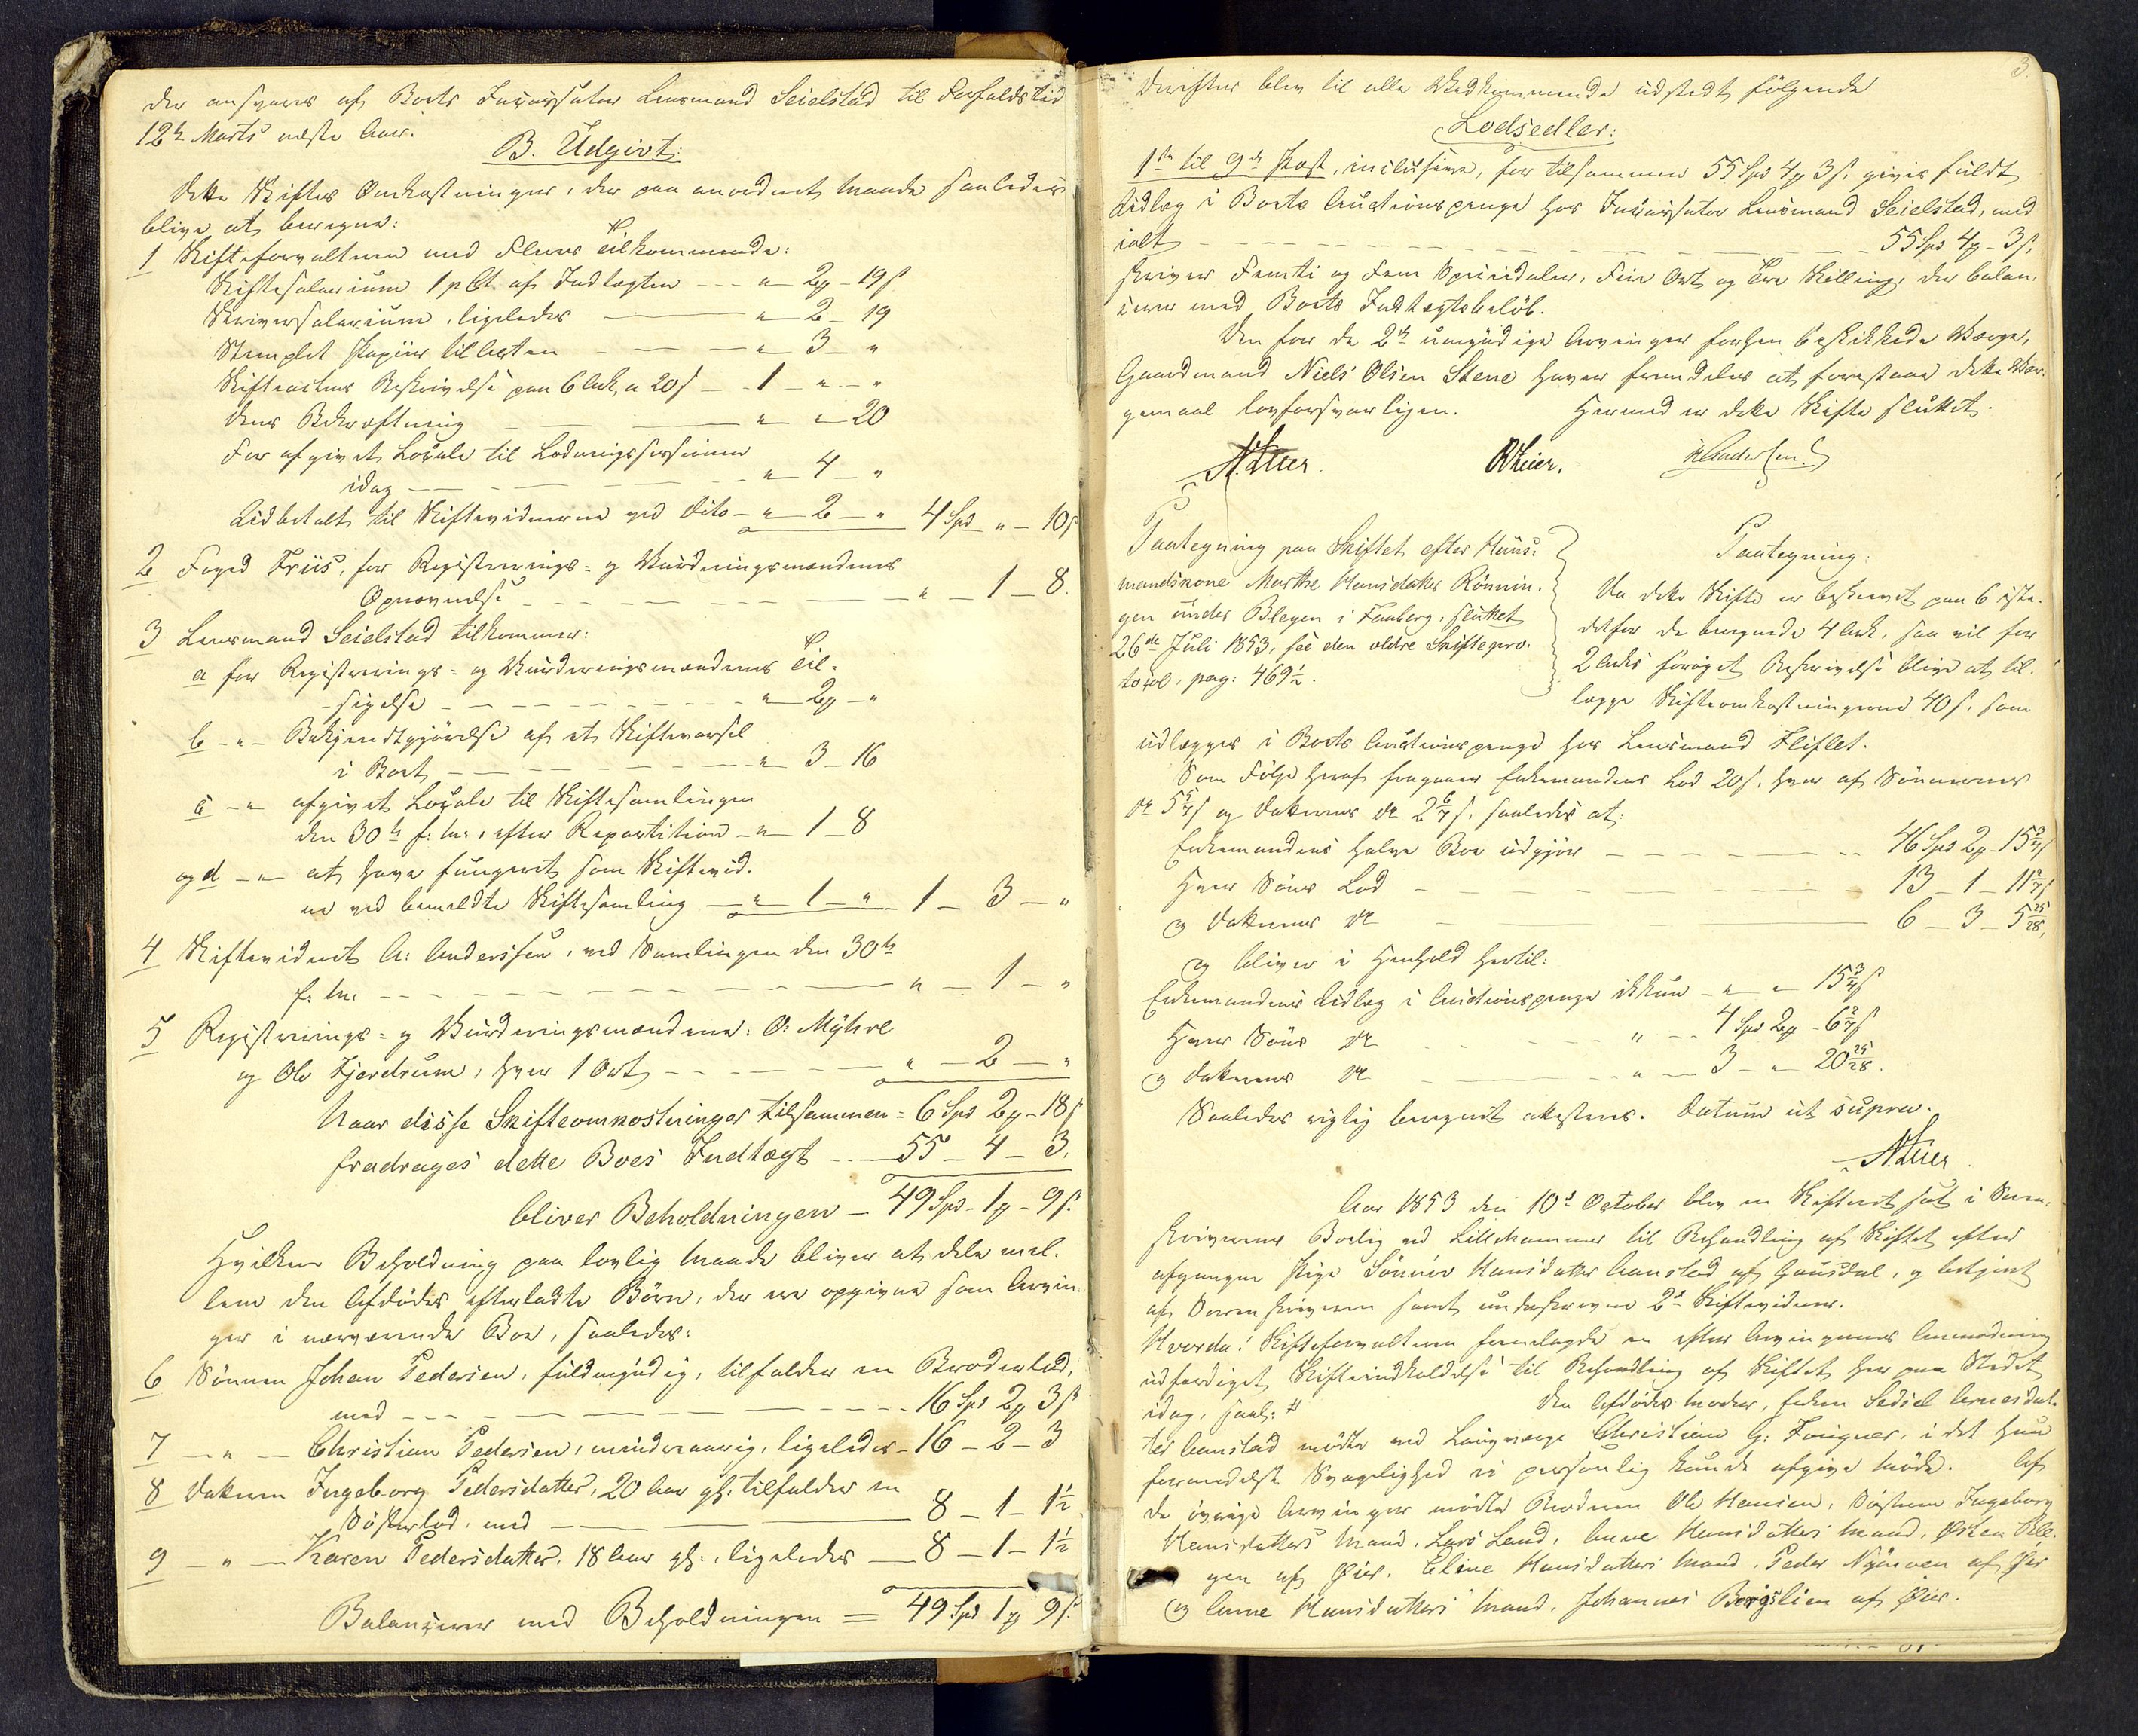 der ansvares af Boets Incassator Lensmand Seielstad til Forfaldstid
12te Marts næste Aar.
B. Udgivt:
Dette Skiftes Omkostninger, der paa anordnet Maade saaledes
blive at beregne:
1 Skifteforvalteren med Flere tilkommende:
Skiftesalarium 1 pCt. af Indtægten --- " 2 - 19 s
Skriversalarium, ligeledes — " 2 - 19
Stemplet Papiir til Acten — — — " 3 - "
Skifteactens Beskrivelse paa 6 Ark, a 20 s — 1 - " - "
Dens Bekræftning — — " " 20
For afgivet Locale til Lodningssessionen
idag — — — " 4 - "
Udbetalt til Skiftevidnerne ved dito - " 2 - " 4 Spd " - 10 s
2 Foged Friis, for Registrerings- og Vurderingsmændenes
Opnævnelse — — — " - 1 - 8.
3 Lensmand Seielstad tilkommer:
a for Registrerings- og Vurderingsmændenes Til-
sigelse — — — " 2 - "
b - " - Bekjendtgjørelse af et Skiftevarsel
i Boet — — — " 3 - 16
c - " afgivet Locale til Skiftesamlingen
den 30te f: M:, efter Repartition - " - 1 - 8
og d - " - at have fungeret som Skiftevid-
ne ved bemeldte Skiftesamling — " 1 - " 1 - 3 - "
4 Skiftevidnet A: Anderssen, ved Samlingen den 30te
f. M. — — — " - 1 - "
5 Registrerings- og Vurderingsmændene: O: Myhre
og Ole Fjerdrum, hver 1 Ort — — " - 2 - "
Naar disse Skifteomkostninger tilsammen = 6 Spd 2 - 18 s
fradrages dette Boes Indtægt — 55 - 4 - 3.
bliver Beholdningen — 49 Spd - 1 - 9 s.
Hvilken Beholdning paa lovlig Maade bliver at dele mel-
lem den Afdødes efterladte Børn, der ere opgivne som Arvin-
ger i nærværende Boe, saaledes:
6 Sønnen Johan Pedersen, fuldmyndig, tilfalder en Broderlod,
med — — — 16 Spd 2 3 s
7 - " - Christian Pedersen, mindreaarig, ligeledes - 16 - 2 - 3
8 Datteren Ingeborg Pedersdatter, 20 Aar gl: tilfalder en
Søsterlod, med — — 8 - 1 - 1½
9 - " - Karen Pedersdatter, 18 Aar gl:, ligeledes — 8 - 1 - 1½
Balancerer med Beholdningen = 49 Spd 1 9 s.
3.
Derefter blev til alle Vedkommende udstedt følgende
Lodsedler:
1ste til 9de Post, inclusive, for tilsammen 55 Spd 4 3 s. gives fuldt
Udlæg i Boets Auctionspenge hos Incassator Lensmand Seielstad, med
ialt — — — 55 Spd 4 - 3 s.
skriver Femti og Fem Speciedaler, Fire Ort og Tre Skilling, der balan-
cerer med Boets Indtægtsbeløb.
Den for de 2de umyndige Arvinger forhen beskikkede Værge,
Gaardmand Niels Olsen Stene haver fremdeles at forestaae dette Vær-
gemaal lovforsvarligen. Hermed er dette Skifte sluttet.
Paategning paa Skiftet efter Huus-
mandskone Marthe Hansdatter Rønnin-
gen under Blegen i Faaberg, sluttet
26de Juli 1853, see den ældre Skiftepro-
tocol, pag: 469½.
Paategning:
Da dette Skifte er beskrevet paa 6 iste-
detfor de beregnede 4 Ark, saa vil for
2 Arks forøget Beskrivelse blive at til-
lægge Skifteomkostningerne 40 s, som
udlægges i Boets Auctionspenge hos Lensmand Fliflet.
Som Følge heraf fragaaer Enkemandens Lod 20 s, hver af Sønnernes
do 5 5/7 s og Døtrenes do 2 6/7 s, saaledes at:
Enkemandens halve Boe udgjør — — — 46 Spd 2 - 15 3/7 s
Hver Søns Lod — — — 13 - 1 - 11 2/7 s
og Døtrenes do — — — 6 - 3 - 5 25/28,
og bliver i Henhold hertil:
Enkemandens Udlæg i Auctionspenge ikkun - " - " 15 3/7 s
Hver Søns do — — " - - 4 Spd 2 - 6 2/7 s
og Døtrenes do — — " - 3 - " 20 25/28.
Saaledes rigtig beregnet attesteres. Datum ut supra.
Aar 1853 den 10de October blev en Skifteret sat i Soren-
skriverens Bolig ved Lillehammer til Behandling af Skiftet efter
afgangne Pige Sønnev Hansdatter Aanstad af Gausdal, og betjent
af Sorenskriveren samt undertegnede 2de Skiftevidner.
Hvorda: Skifteforvalteren fremlagde en efter Arvingernes Anmodning
udfærdiget Skifteindkaldelse til Behandling af Skiftet her paa Stedet
idag, saal: # Den Afdødes Moder, Enken Sedsel Arnesdat-
ter Aanstad mødte ved Laugværge Christian G: Fougner, i det hun
formedelst Svagelighed ei personlig kunde afgive Møde. Af
de øvrige Arvinger mødte Broderen Ole Hansen, Søsteren Ingeborg
Hansdatters Mand, Lars Lund, Anne Hansdatters Mand,
gen af Øier. Eline Hansdatters Mand, Peder Nyøveen af Øier
og Anne Hansdatters Mand, Johannes Bergslien af Øier.